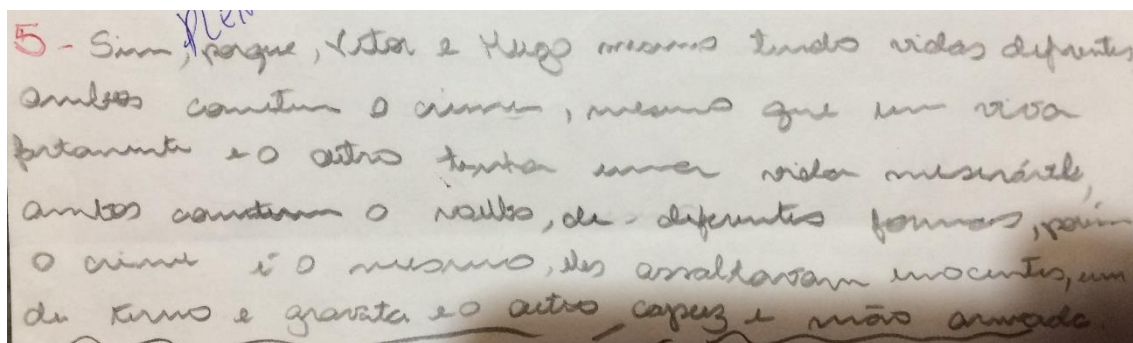 5 - Sim, porque, Vitor e Hugo mesmo tendo vidas difrentes
ambos cometem o crime, mesmo que um viva
fortamente e o outro tenha uma vida miserável,
ambos cometem o roubo, de diferentes formas, porém
o crime é o mesmo, eles assaltavam inocentes, um
de terno e gravata e o outro capuz e mão armada.